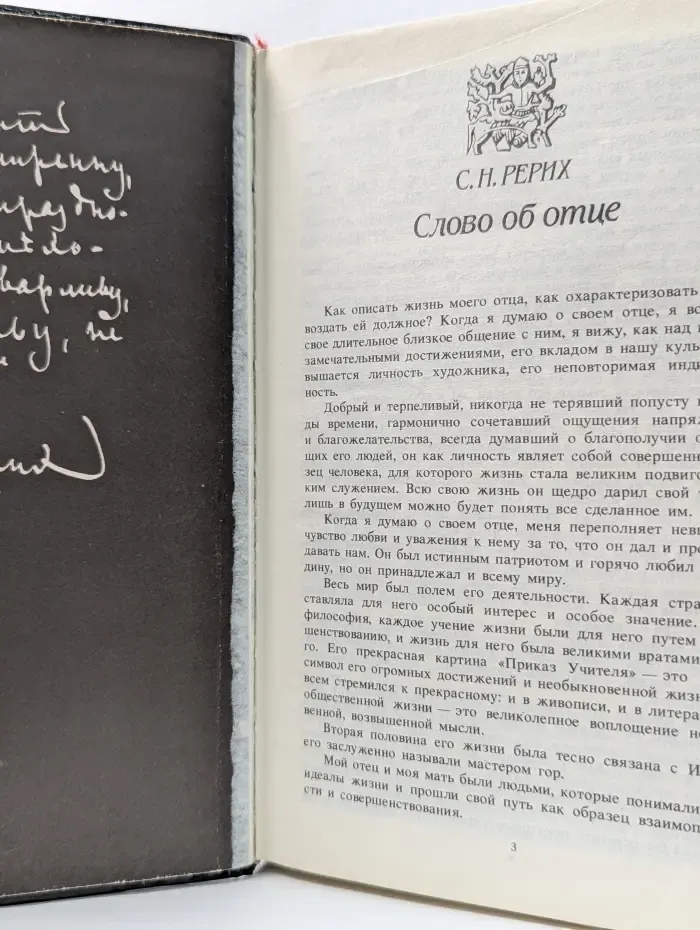 С. Н. РЕРИХ
Слово об отце
Как описать жизнь моего отца, как охарактеризовать
воздать ей должное? Когда я думаю о своем отце, я вс
свое длительное близкое общение с ним, я вижу, как над
замечательными достижениями, его вкладом в нашу куль
вышается личность художника, его неповторимая инди
ность.
Добрый и терпеливый, никогда не терявший попусту
ды времени, гармонично сочетавший ощущения напря
и благожелательства, всегда думавший о благополучии о
щих его людей, он как личность являет собой совершенн
зец человека, для которого жизнь стала великим подвиго
ким служением. Всю свою жизнь он щедро дарил свой
лишь в будущем можно будет понять все сделанное им.
Когда я думаю о своем отце, меня переполняет невы
чувство любви и уважения к нему за то, что он дал и про
давать нам. Он был истинным патриотом и горячо любил
дину, но он принадлежал и всему миру.
Весь мир был полем его деятельности. Каждая стра
ставляла для него особый интерес и особое значение.
философия, каждое учение жизни были для него путем
шенствованию, и жизнь для него была великими вратами
го. Его прекрасная картина «Приказ Учителя» — это
символ его огромных достижений и необыкновенной жиз
всем стремился к прекрасному: и в живописи, и в литера
общественной жизни — это великолепное воплощение не
венной, возвышенной мысли.
Вторая половина его жизни была тесно связана с И
его заслуженно называли мастером гор.
Мой отец и моя мать были людьми, которые понимали
идеалы жизни и прошли свой путь как образец взаимоп
сти и совершенствования.
3